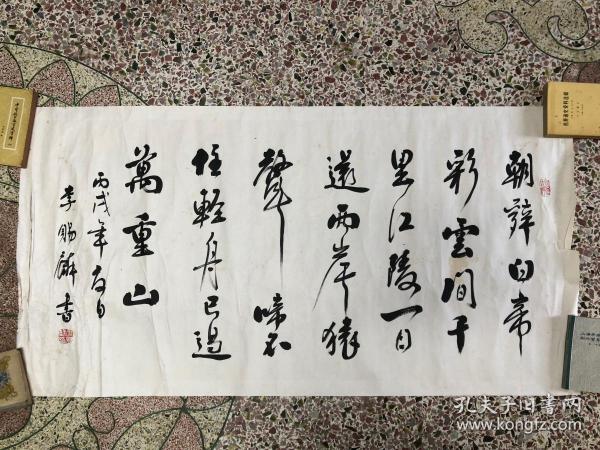 朝辞白帝
彩雲間千
里江陵一日
還两岸猿
聲啼不
住輕舟已過
萬重山
丙戌年友日
李賜麟書
孔夫子旧书网
www.kongfz.com